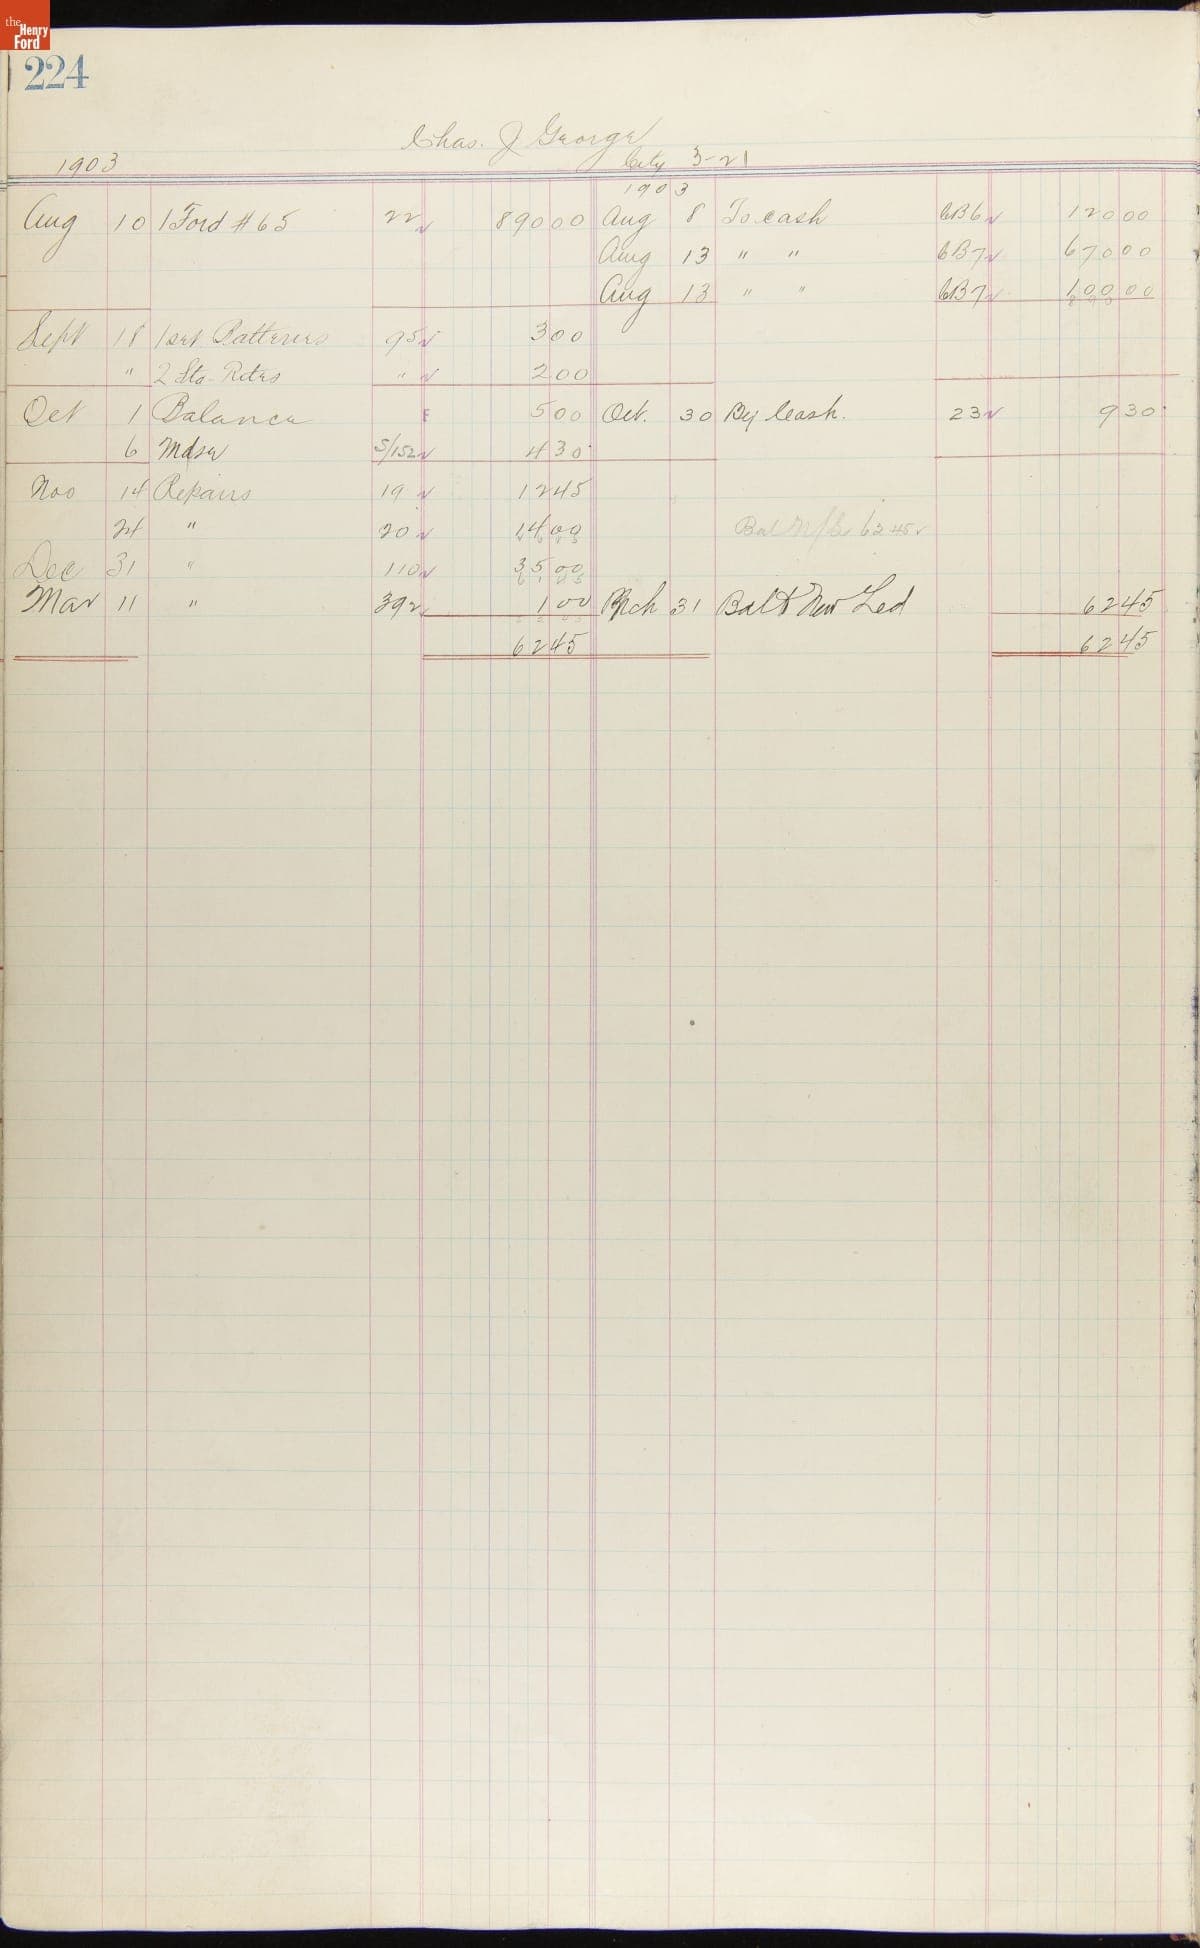 the Henry Ford
224
Chas. J George
1903 City 3-21
1903
Aug 10 1 Ford # 65 22 89000 Aug 8 To cash CB6 12000
Aug 13 " " CB7 67000
Aug 13 " " CB7 10000
Sept 18 1 set Batteries 95 300
" 2 Sto-Rites " 200
Oct 1 Balance 500 Oct. 30 By Cash. 23 930
6 Mdse S/152 430
Nov 14 Repairs 19 1245
24 " 20 1400 Bal 6245
Dec 31 " 110 3500
Mar 11 " 392 100 Mch 31 Bal t New Led 6245
6245 6245